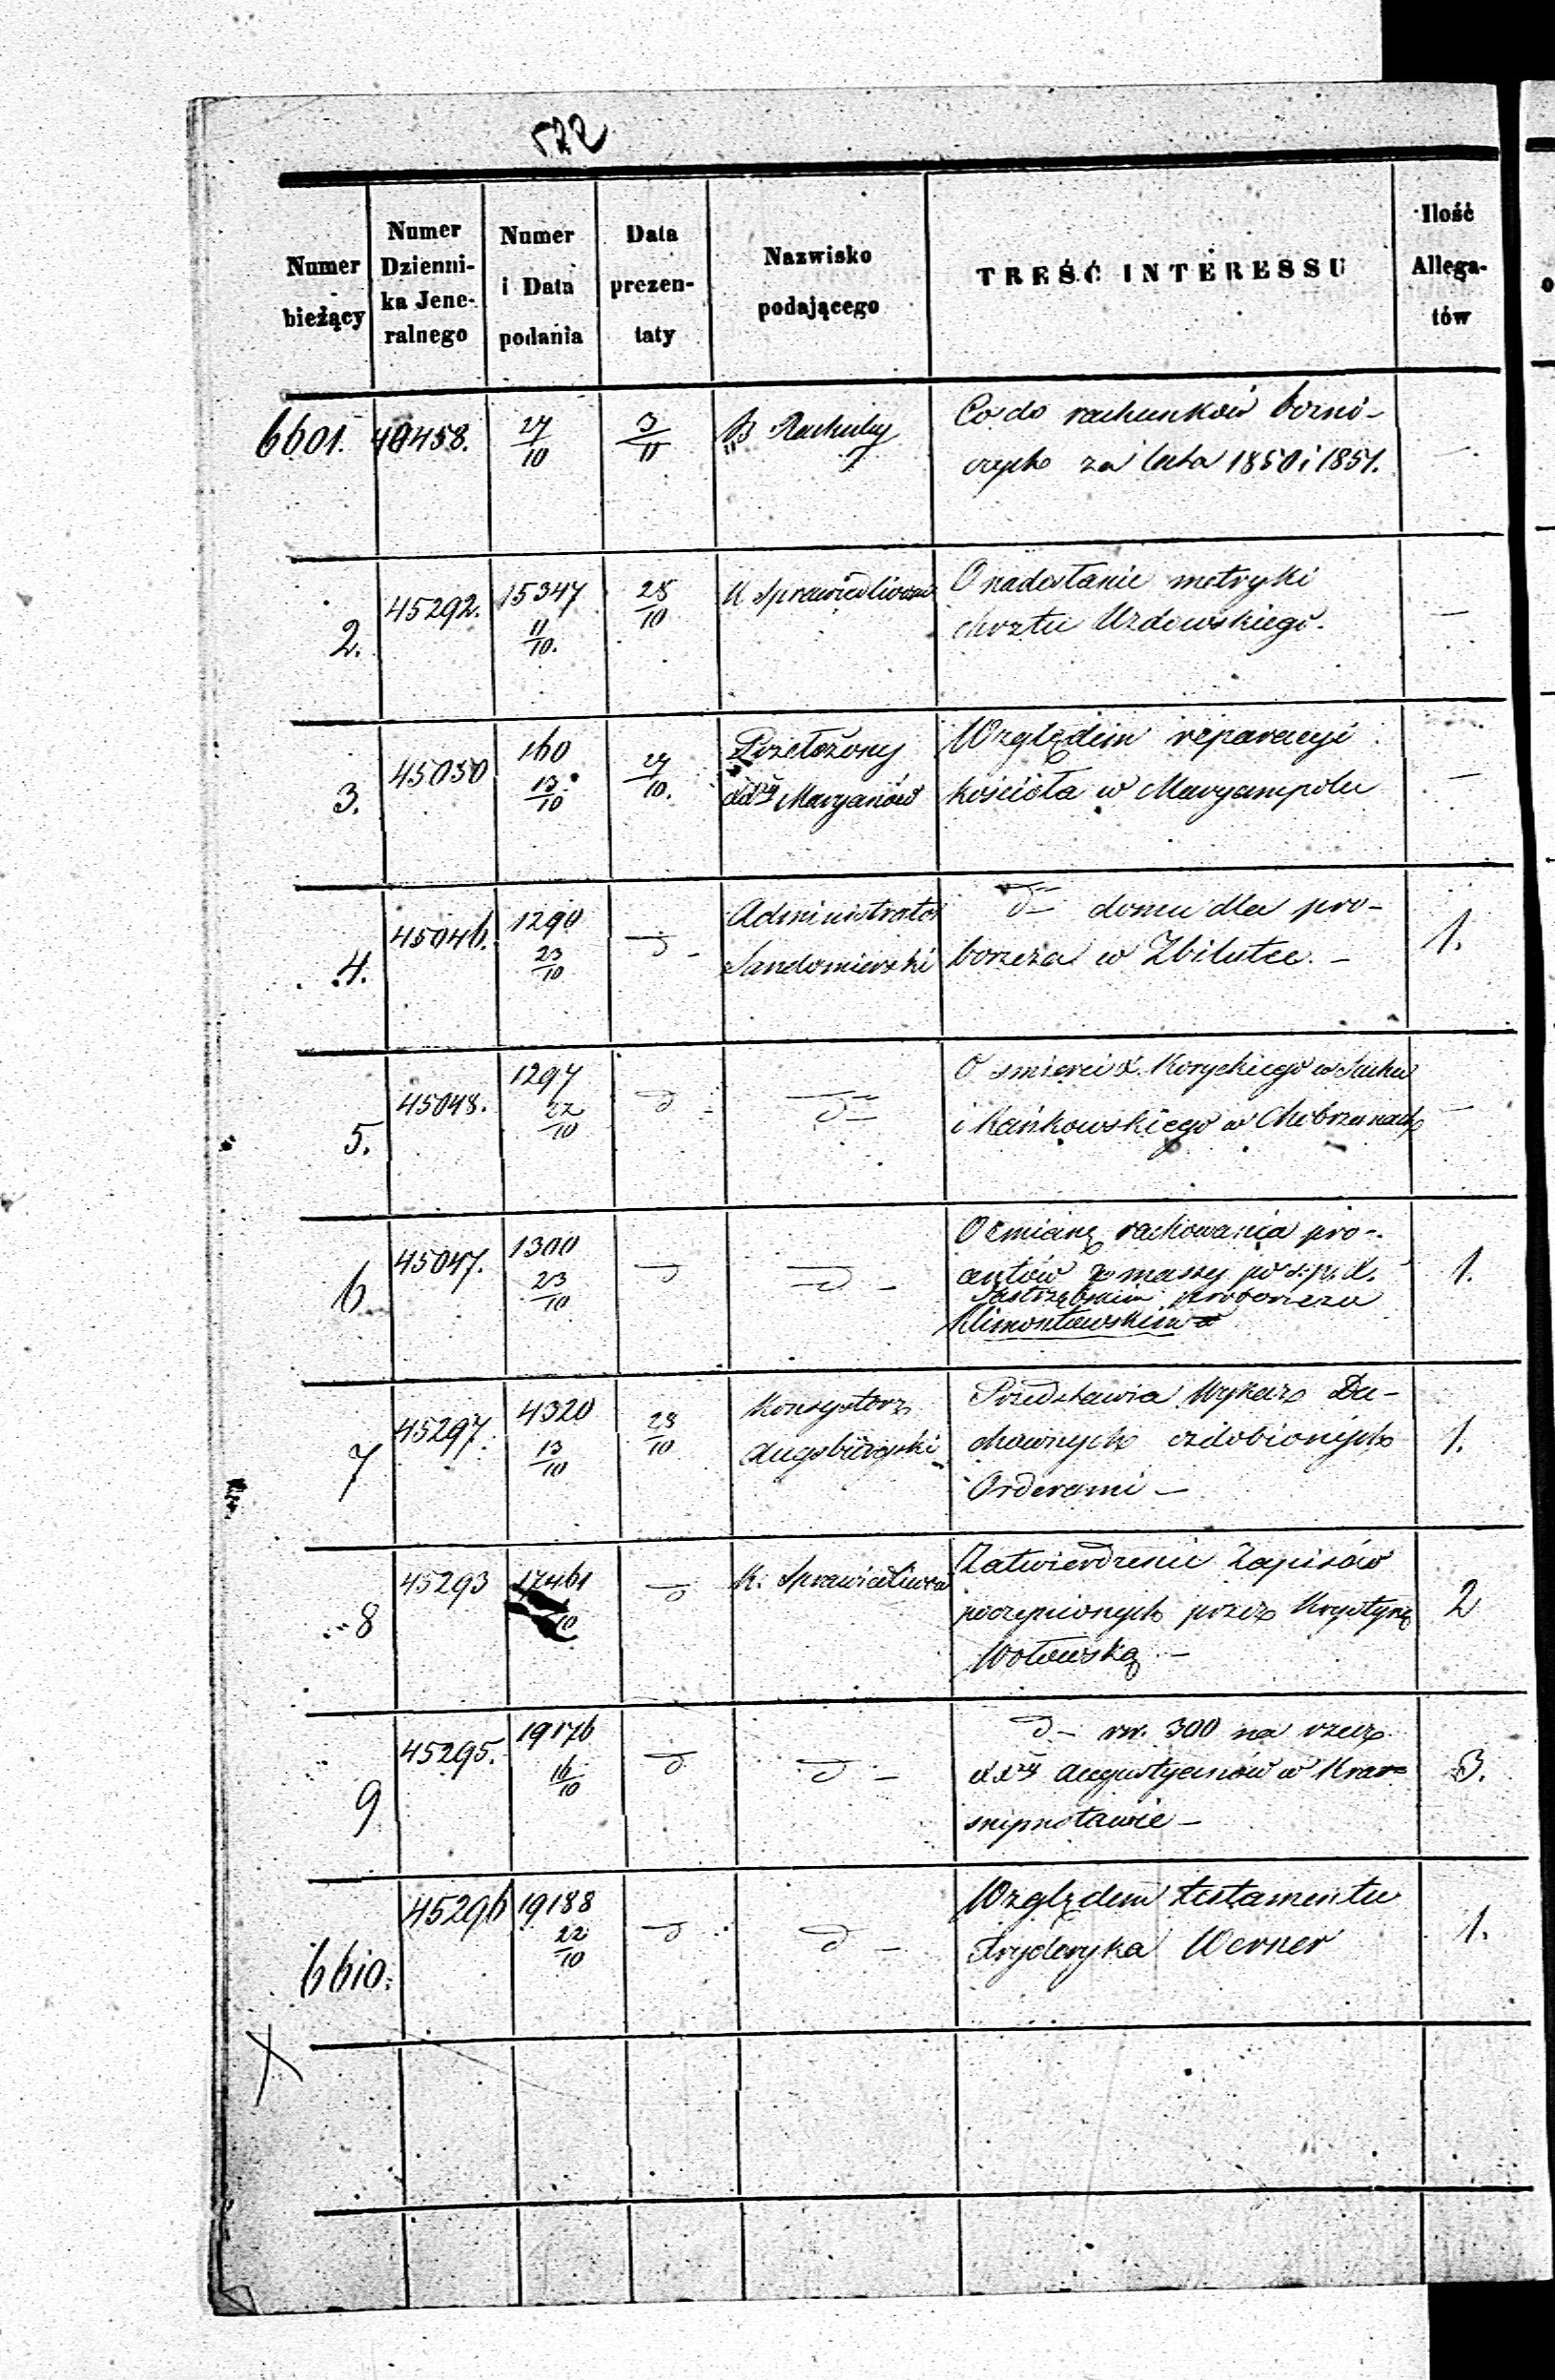 522
Numer bieżący
Numer Dzienni-
ka Jene-
ralnego
Numer
i Data
podania
Data
prezen-
taty
Nazwisko
podającego
TREŚĆ INTERESSU
Ilość
Allega-
tów
6601. 40458. 27/10 3/11 Co do rachunków bożni-
czych za lata 1850 i 1851. —
2. 45292. 15347 11/10. 28/10 K Sprawiedliwości O nadesłanie metryki
chrztu Uzdowskiego. —
3. 45050 160 13/10 27/10. Przełożony Względem reparacyi
XXży Maryanów kościoła w Maryampolu —
4. 45046. 1290 23/10 d - Administrator d- domu dla pro-
Sandomierski boszcza w Zbilutce. — 1.
5. 45048. 1297 22/10 d - d- O śmierci X. Koryckiego w
i Mańkowskiego w Chobrzanach —
6 45047. 1300 23/10 d d - O zmianę rachowania pro-
centów z massy po ś. p. X.
Jastrzębskim proboszczu
Klimontowskim 1.
7 45297. 4320 13/10 28/10 Konsystorz Przedstawia Wykaz Du-
Augsburgski chownych ozdobionych 1.
Orderami —
8 45293 17461 /10 d K. Sprawiedliwości Zatwierdzenie Zapisów
poczynionych przez Krystynę 2
Wołowską —
9 45295. 19176 16/10 d d - d - rsr. 300 na rzecz
XXży Augustyanów w Kras- 3.
nymstawie —
6610. 45296 19188 22/10 d d - Względem testamentu
Fryderyka Werner 1.
X